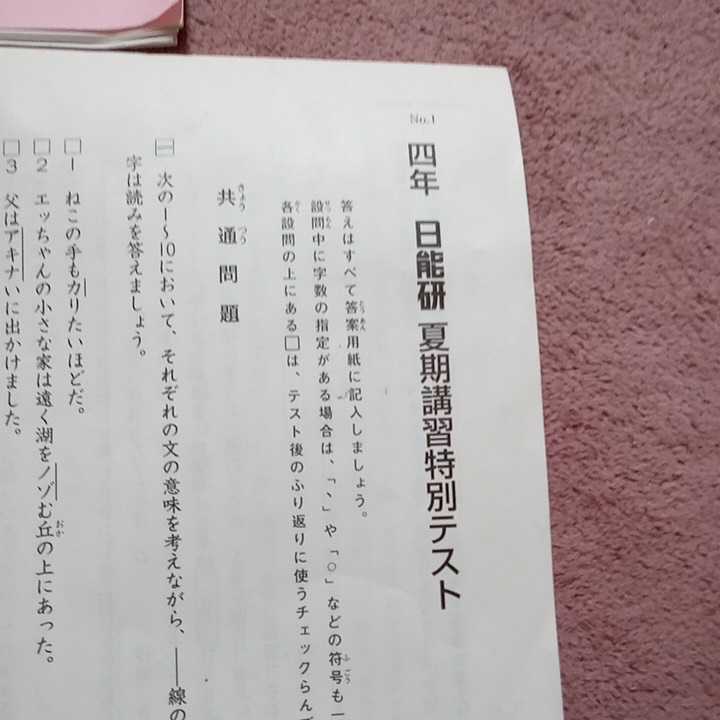 No.1
四年 日能研 夏期講習特別テスト
答えはすべて答案用紙に記入しましょう。
設問中に字数の指定がある場合は、「、」や「。」などの符号も一
各設問の上にある□は、テスト後のふり返りに使うチェックらんで
共通問題
一 次の1〜10において、それぞれの文の意味を考えながら、――線の
字は読みを答えましょう。
□1 ねこの手もカりたいほどだ。
□2 エッちゃんの小さな家は遠く湖をノゾむ丘の上にあった。
□3 父はアキナいに出かけました。